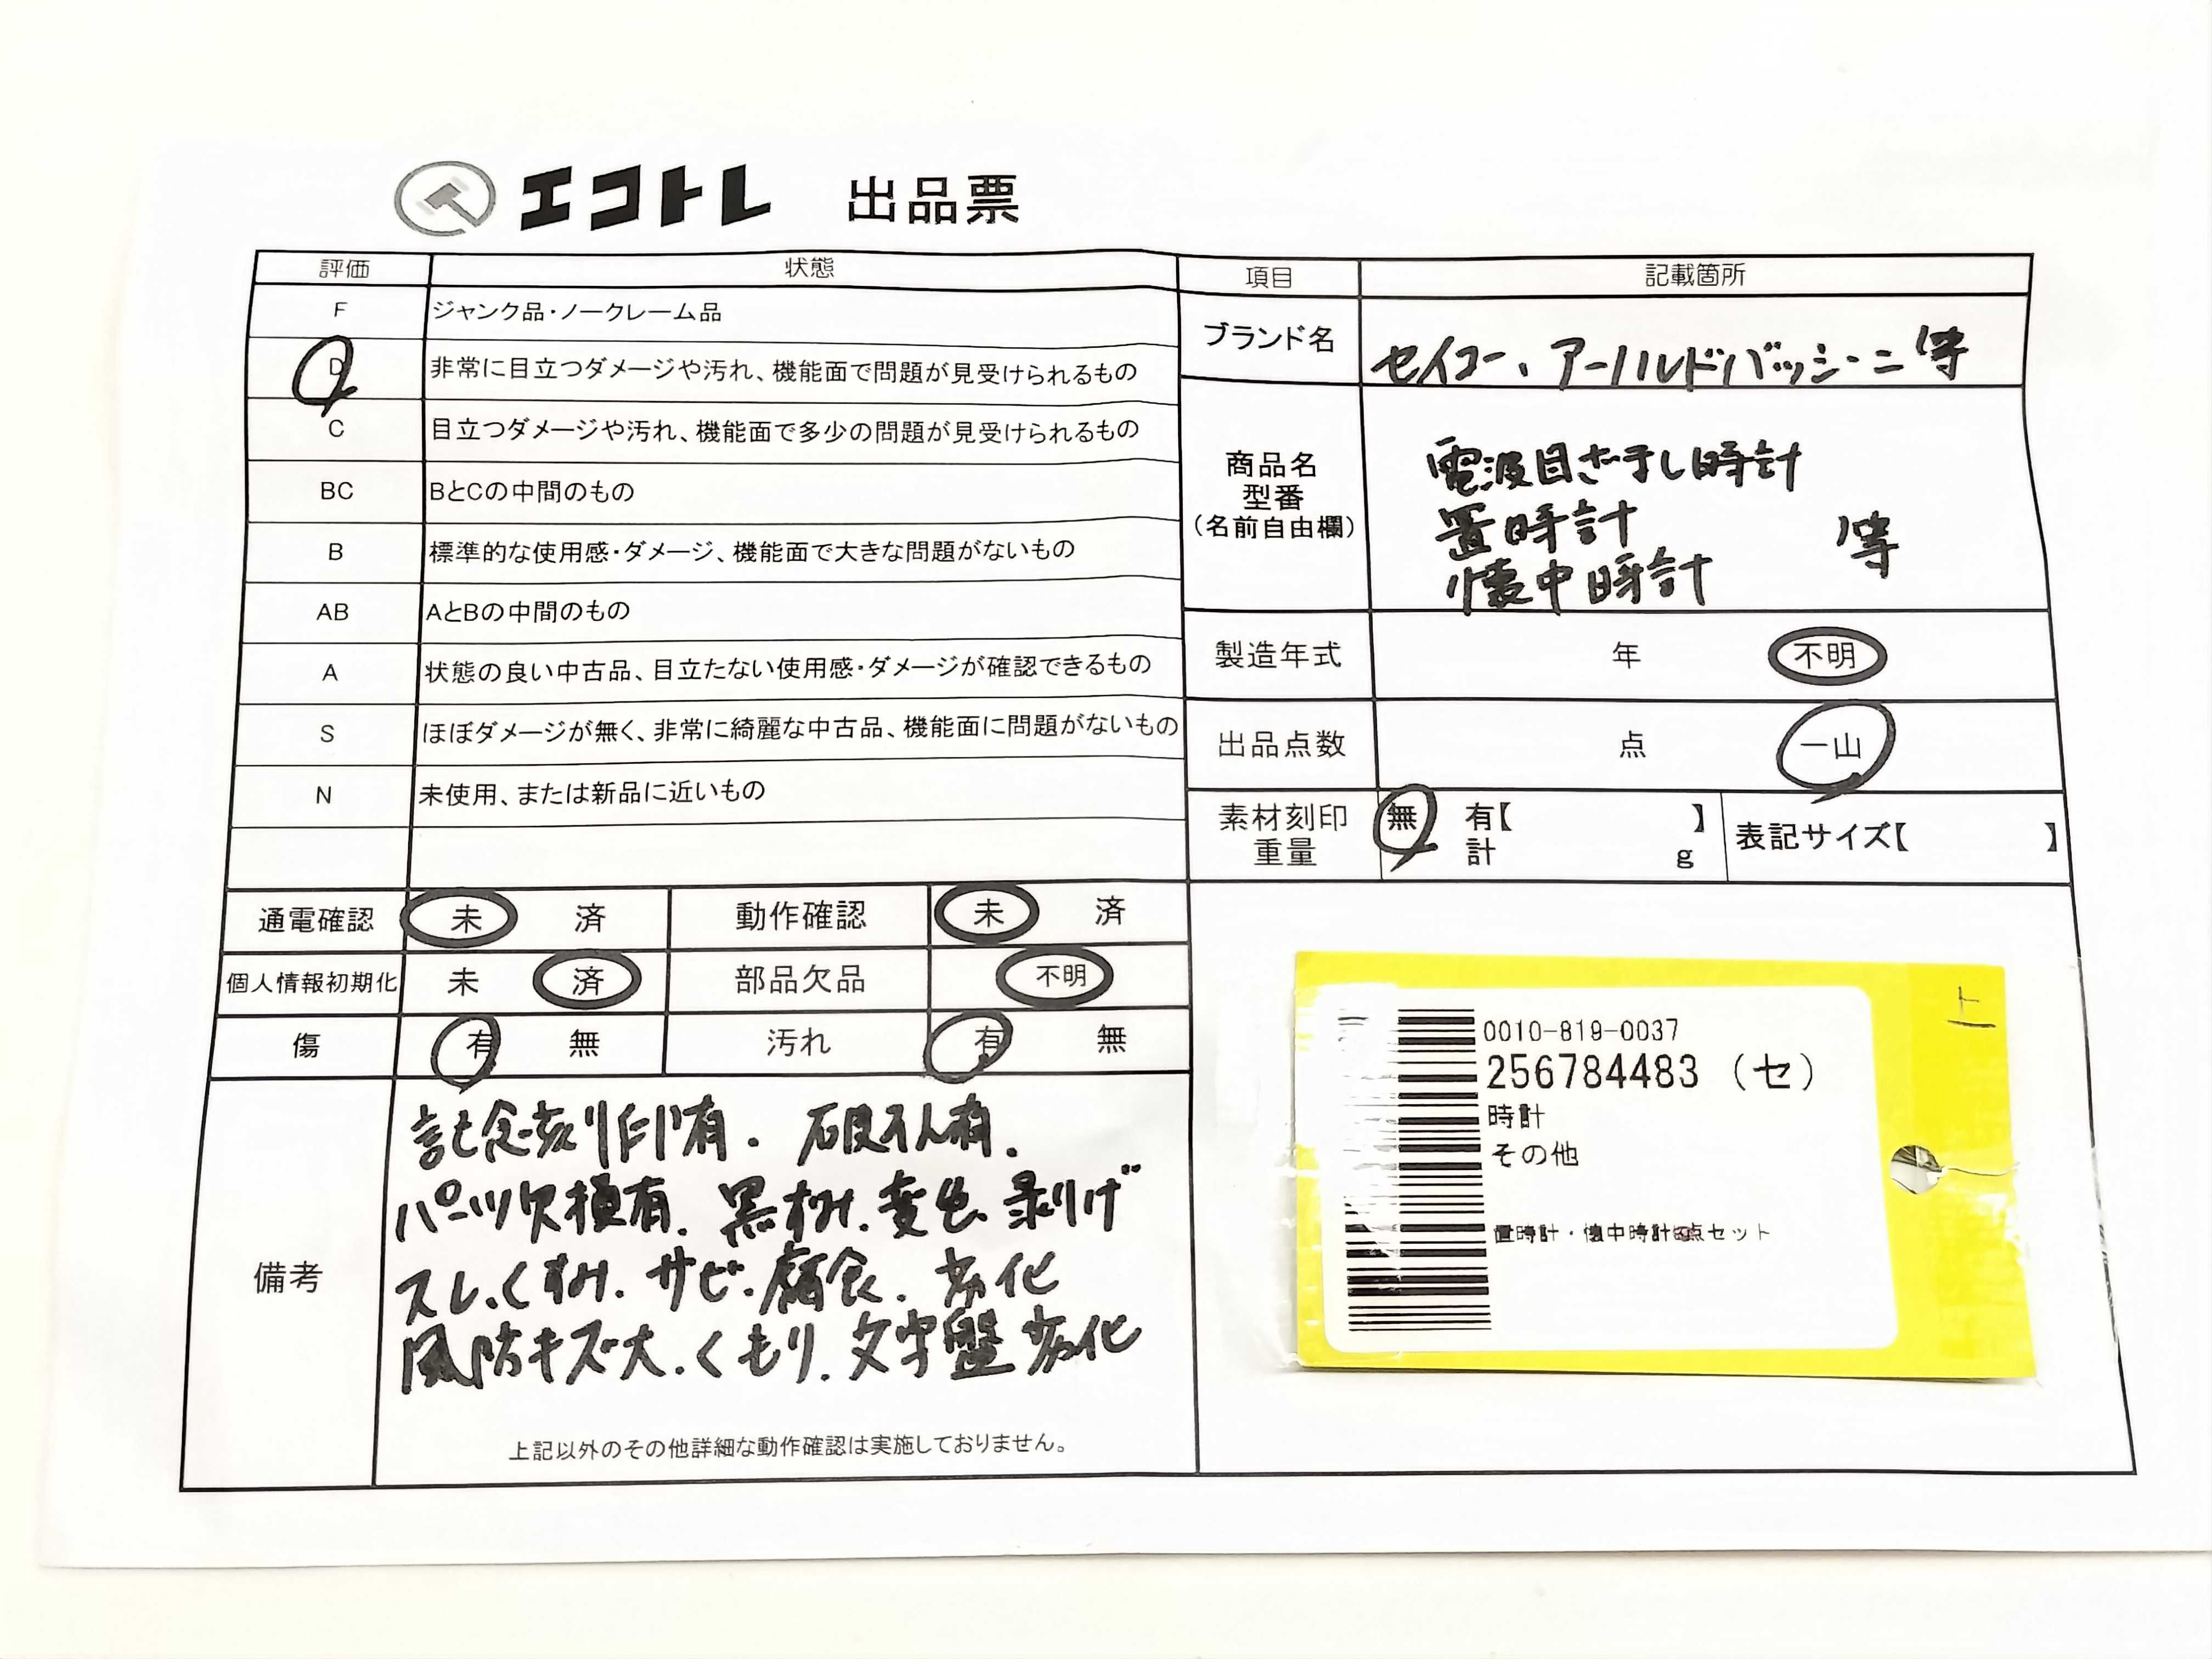 エコトレ 出品票
評価 状態
F ジャンク品・ノークレーム品
D 非常に目立つダメージや汚れ、機能面で問題が見受けられるもの
C 目立つダメージや汚れ、機能面で多少の問題が見受けられるもの
BC BとCの中間のもの
B 標準的な使用感・ダメージ、機能面で大きな問題がないもの
AB AとBの中間のもの
A 状態の良い中古品、目立たない使用感・ダメージが確認できるもの
S ほぼダメージが無く、非常に綺麗な中古品、機能面に問題がないもの
N 未使用、または新品に近いもの
項目 記載箇所
ブランド名 セイコー、アーノルドバッシーニ等
商品名
型番
(名前自由欄)
電波目ざまし時計
置時計 等
懐中時計
製造年式 年 不明
出品点数 点 一山
素材刻印 無 有【 】 表記サイズ【 】
重量 計 g
通電確認 未 済 動作確認 未 済
個人情報初期化 未 済 部品欠品 不明
傷 有 無 汚れ 有 無
備考
記念刻印有. 破損有.
パーツ欠損有. 黒ずみ. 変色. 剥げ
スレ. くすみ. サビ. 腐食. 劣化
風防キズ大. くもり. 文字盤劣化
上記以外のその他詳細な動作確認は実施しておりません。
ト
0010-819-0037
256784483 (セ)
時計
その他
置時計・懐中時計 点セット